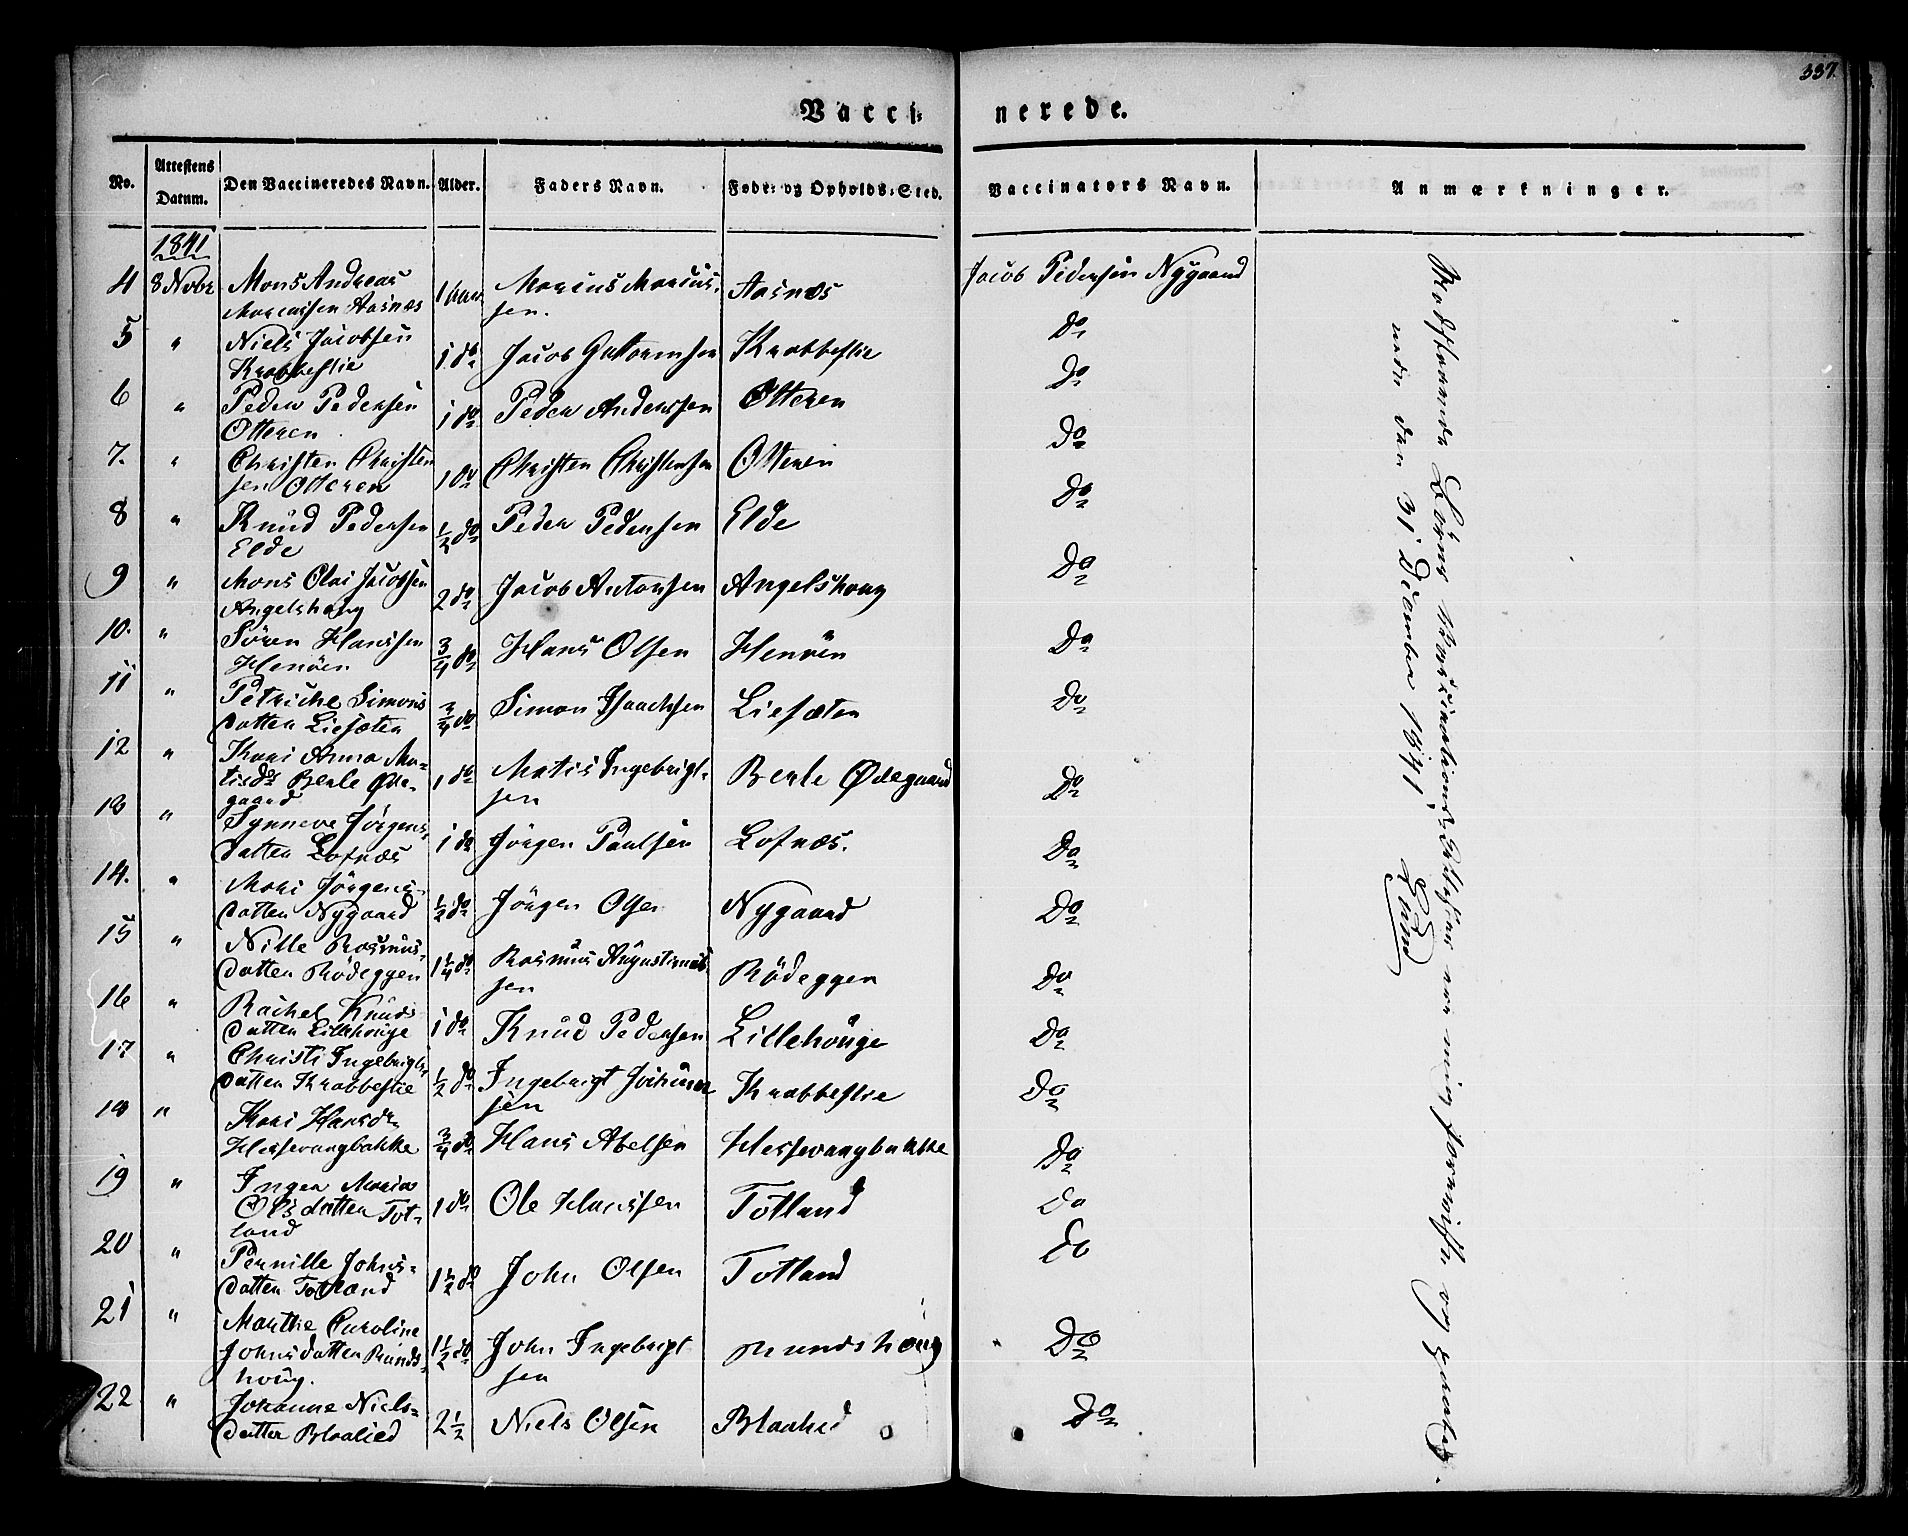 337.
Vacci= nerede.
No. Attestens Datum. Den Vaccineredes Navn. Alder. Faders Navn. Føde- og Opholds-Sted. Vaccinators Navn. Anmærkninger.
1841
4 8 Nobr Mons Andreas Mariussen Aasnæs 1 Aar Marius Marius-sen. Aasnæs Jacob Pedersen Nygaard
5 " Niels Jacobsen Krabbestie 1 do Jacob Guttormsen Krabbestie Do
6 " Peder Pedersen Otteren 1 do Peder Anderssen Otteren Do
7. " Christen Christensen Otteren 1 do Christen Christensen Otteren Do
8 " Knud Pedersen Elde 1/2 do Peder Pedersen Elde Do
9 " Mons Olai Jacobsen Angelshoug 2 do Jacob Antonsen Angelshoug Do
10. " Sören Hanssen Henöen 3/4 do Hans Olsen Henöen Do
11 " Petriche Simons Datter Liesæter 3/4 do Simon Isaachsen Liesæter Do
12 " Kari Anna Ma-tisdr Berle Øde-gaard 1 do Matis Ingebrigt-sen Berle Ødegaard Do
13 " Synneve Jörgens-Datter Lofnæs 1 do Jörgen Paulsen Lofnæs. Do
14. " Mari Jörgens-Datter Nygaard 1/2 do Jörgen Olsen Nygaard Do
15 " Nille Rasmus-Datter Rödeggen 1 1/4 do Rasmus Augustinus-sen Rödeggen Do
16 " Rachel Knuds Datter Lillehouge 1 do Knud Pedersen Lillehouge Do
17 " Christi Ingebrigts-Datter Krabbestie 1/2 do Ingebrigt Joh-sen Krabbestie Do
18 " Kari Hansdr Hessevangbakke 3/4 do Hans Abelsen Hessevangbakke Do
19 " Inger Maria Olsdatter Tot-land 1 do Ole Hanssen Totland Do
20 " Pernille Johns-Datter Totland 1 1/2 do John Olsen Totland Do
21 " Marthe Caroline Johnsdatter Runds-houg. 1 1/2 do John Ingebrigt-sen Rundshoug Do
22 " Johanne Niels-Datter Blaalied 2 1/2 Niels Olsen Blaalied Do
Modstaaende Börns Vaccinations-Attester ere mig foreviste og
under den 31 December 1841.